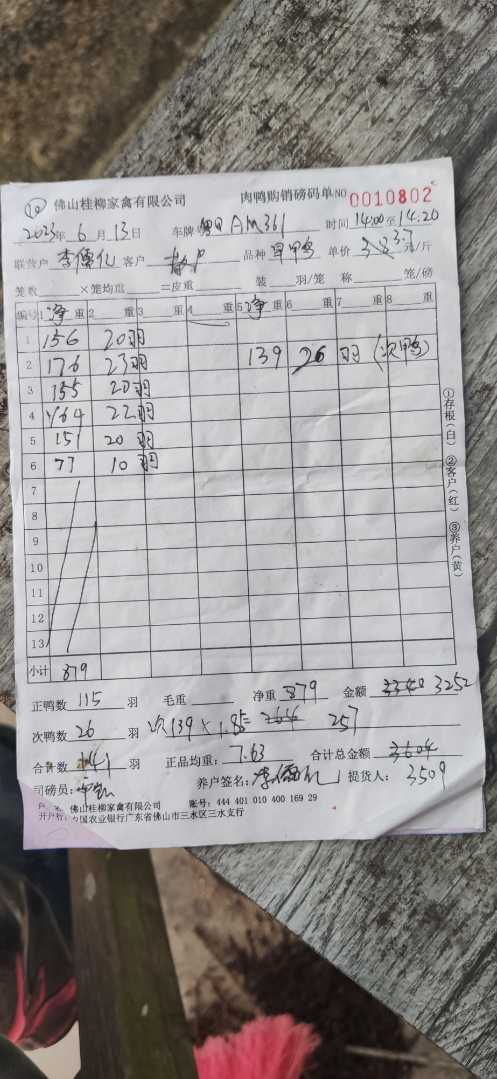 10 佛山桂柳家禽有限公司 肉鸭购销磅码单 NO 0010802
2023年 6 月 13 日 车牌 AM361 时间 14:00 至 14:20
联营户 李儒亿 客户 品种 单价 3.8 3.7 元/斤
笼数 ×笼均皮 =皮重 装 羽/笼 称 笼/磅
编号 1 净 重 2 重 3 重 4 重 5 净 重 6 重 7 重 8 重
1 156 20羽
2 176 23羽 139 26 羽 (次鸭)
3 155 20羽
4 164 22羽
5 151 20 羽
6 77 10 羽
7
8
9
10
11
12
13
小计 879
正鸭数 115 羽 毛重 净重 879 金额 3340 3252
次鸭数 26 羽 次139×1.85= 257
合计数 141 羽 正品均重: 7.63 合计总金额 3604
司磅员: 养户签名: 李儒亿 提货人: 3509
户 名: 佛山桂柳家禽有限公司 账号: 444 401 010 400 169 29
开户行: 中国农业银行广东省佛山市三水区三水支行
①存根(白) ②客户(红) ③养户(黄)